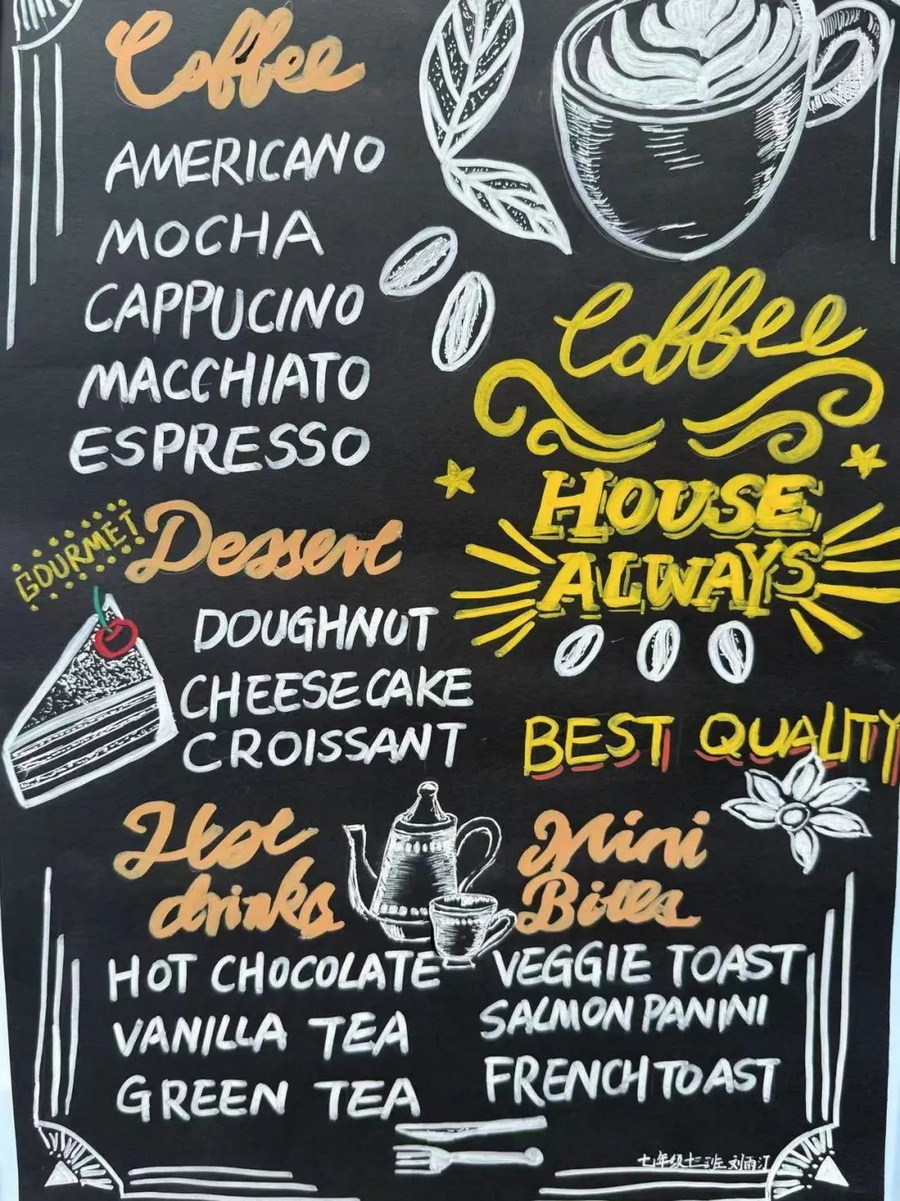 Coffee
AMERICANO
MOCHA
CAPPUCINO
MACCHIATO
ESPRESSO
Coffee
HOUSE
ALWAYS
BEST QUALITY
GOURMET
Dessert
DOUGHNUT
CHEESECAKE
CROISSANT
Hot
drinks
HOT CHOCOLATE
VANILLA TEA
GREEN TEA
Mini
Bites
VEGGIE TOAST
SALMON PANINI
FRENCH TOAST
七年级十三班 刘雨江